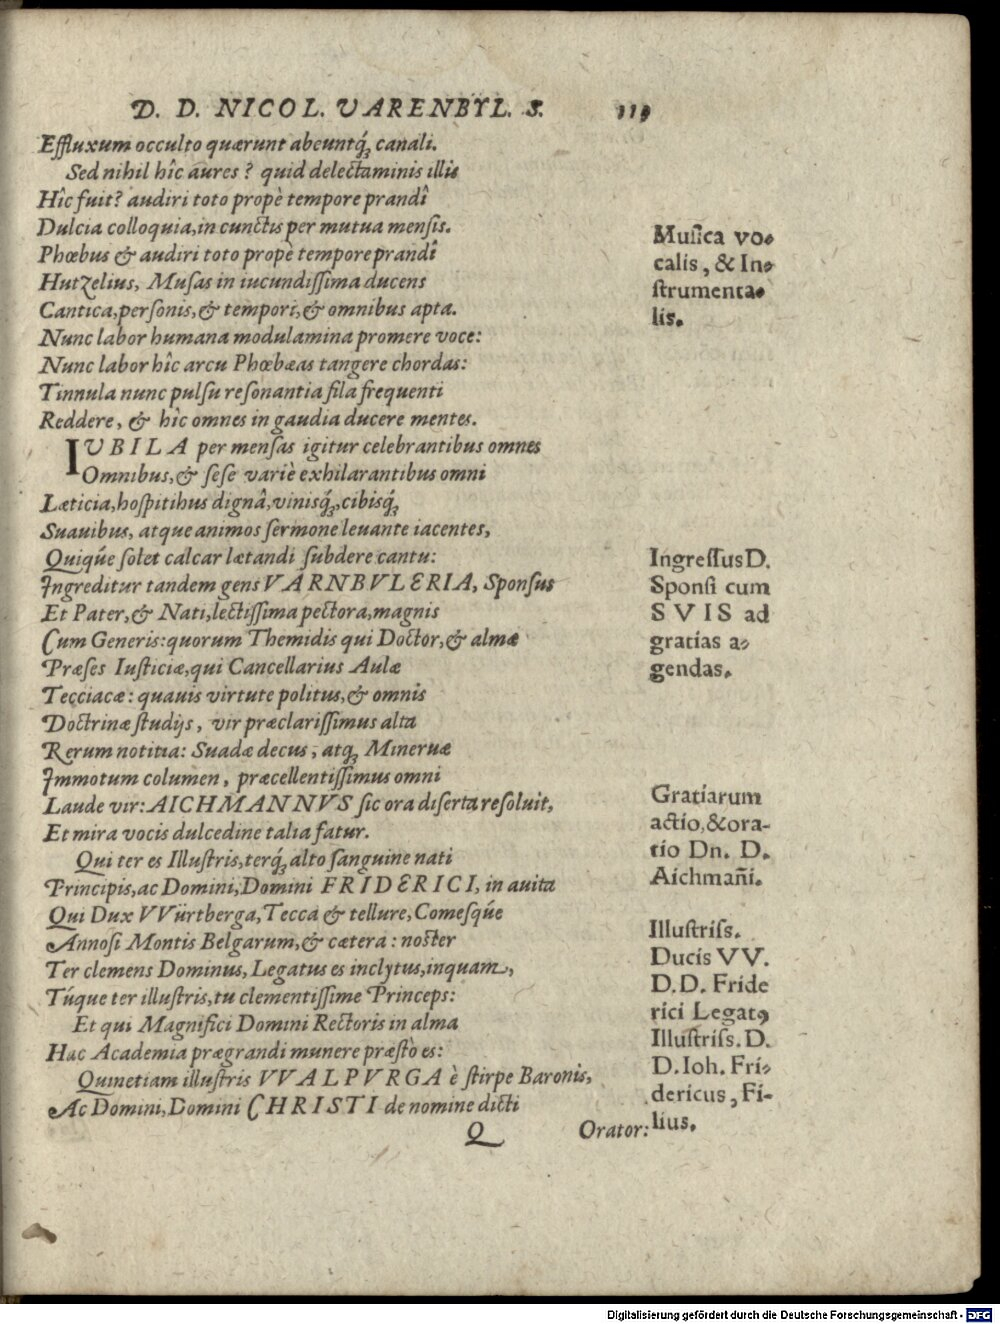 D. D. NICOL. VARENBYL. S. 119
Effluxum occulto quærunt abeuntq́ꝫ canali.
Sed nihil hîc aures? quid delectaminis illis
Hîc fuit? audiri toto propè tempore prandî
Dulcia colloquia, in cunctis per mutua mensis.
Phœbus & audiri toto propè tempore prandî
Hutzelius, Musas in iucundissima ducens
Cantica, personis, & tempori, & omnibus apta.
Nunc labor humana modulamina promere voce:
Nunc labor hîc arcu Phœbæas tangere chordas:
Tinnula nunc pulsu resonantia fila frequenti
Reddere, & hîc omnes in gaudia ducere mentes.
Musica vo-
calis, & In-
strumenta-
lis.
IVBILA per mensas igitur celebrantibus omnes
Omnibus, & sese variè exhilarantibus omni
Læticia, hospitibus dignâ, vinisq́ꝫ, cibisq́ꝫ
Suauibus, atque animos sermone leuante iacentes,
Quiq́ue solet calcar lætandi subdere cantu:
Ingreditur tandem gens VARNBVLERIA, Sponsus
Et Pater, & Nati, lectissima pectora, magnis
Cum Generis: quorum Themidis qui Doctor, & almæ
Præses Iusticiæ, qui Cancellarius Aulæ
Tecciacæ: quauis virtute politus, & omnis
Doctrinæ studijs, vir præclarissimus alta
Rerum notitia: Suadæ decus, atqꝫ Mineruæ
Immotum columen, præcellentissimus omni
Laude vir: AICHMANNVS sic ora diserta resoluit,
Et mira vocis dulcedine talia fatur.
Ingressus D.
Sponsi cum
SVIS ad
gratias a-
gendas.
Qui ter es Illustris, terq́ꝫ alto sanguine nati
Principis, ac Domini, Domini FRIDERICI, in auita
Qui Dux VVürtberga, Tecca & tellure, Comesq́ue
Annosi Montis Belgarum, & cætera: noster
Ter clemens Dominus, Legatus es inclytus, inquam,
Túque ter illustris, tu clementissime Princeps:
Et qui Magnifici Domini Rectoris in alma
Hac Academia prægrandi munere præstò es:
Quinetiam illustris VVALPVRGA è stirpe Baronis,
Ac Domini, Domini CHRISTI de nomine dicti
Gratiarum
actio, & ora-
tio Dn. D.
Aichmañi.
Illustriss.
Ducis VV.
D. D. Fride
rici Legatꝰ
Illustriss. D.
D. Ioh. Fri-
dericus, Fi-
lius.
Q Orator:
Digitalisierung gefördert durch die Deutsche Forschungsgemeinschaft - DFG